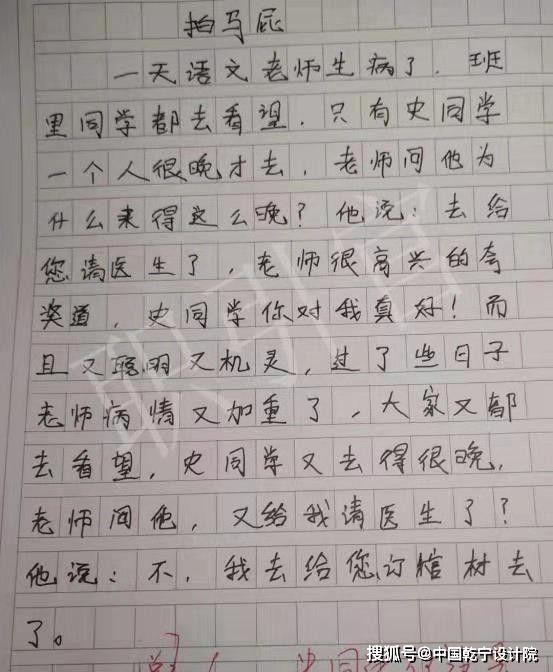 拍马屁
一天语文老师生病了．班
里同学都去看望．只有史同学
一个人很晚才去，老师问他为
什么来得这么晚？他说：去给
您请医生了，老师很高兴的夸
奖道，史同学你对我真好！而
且又聪明又机灵，过了些日子
老师病情又加重了，大家又都
去看望，史同学又去得很晚．
老师问他，又给我请医生了？
他说：不．我去给您订棺材去
了。
史同学
搜狐号@中国乾宁设计院